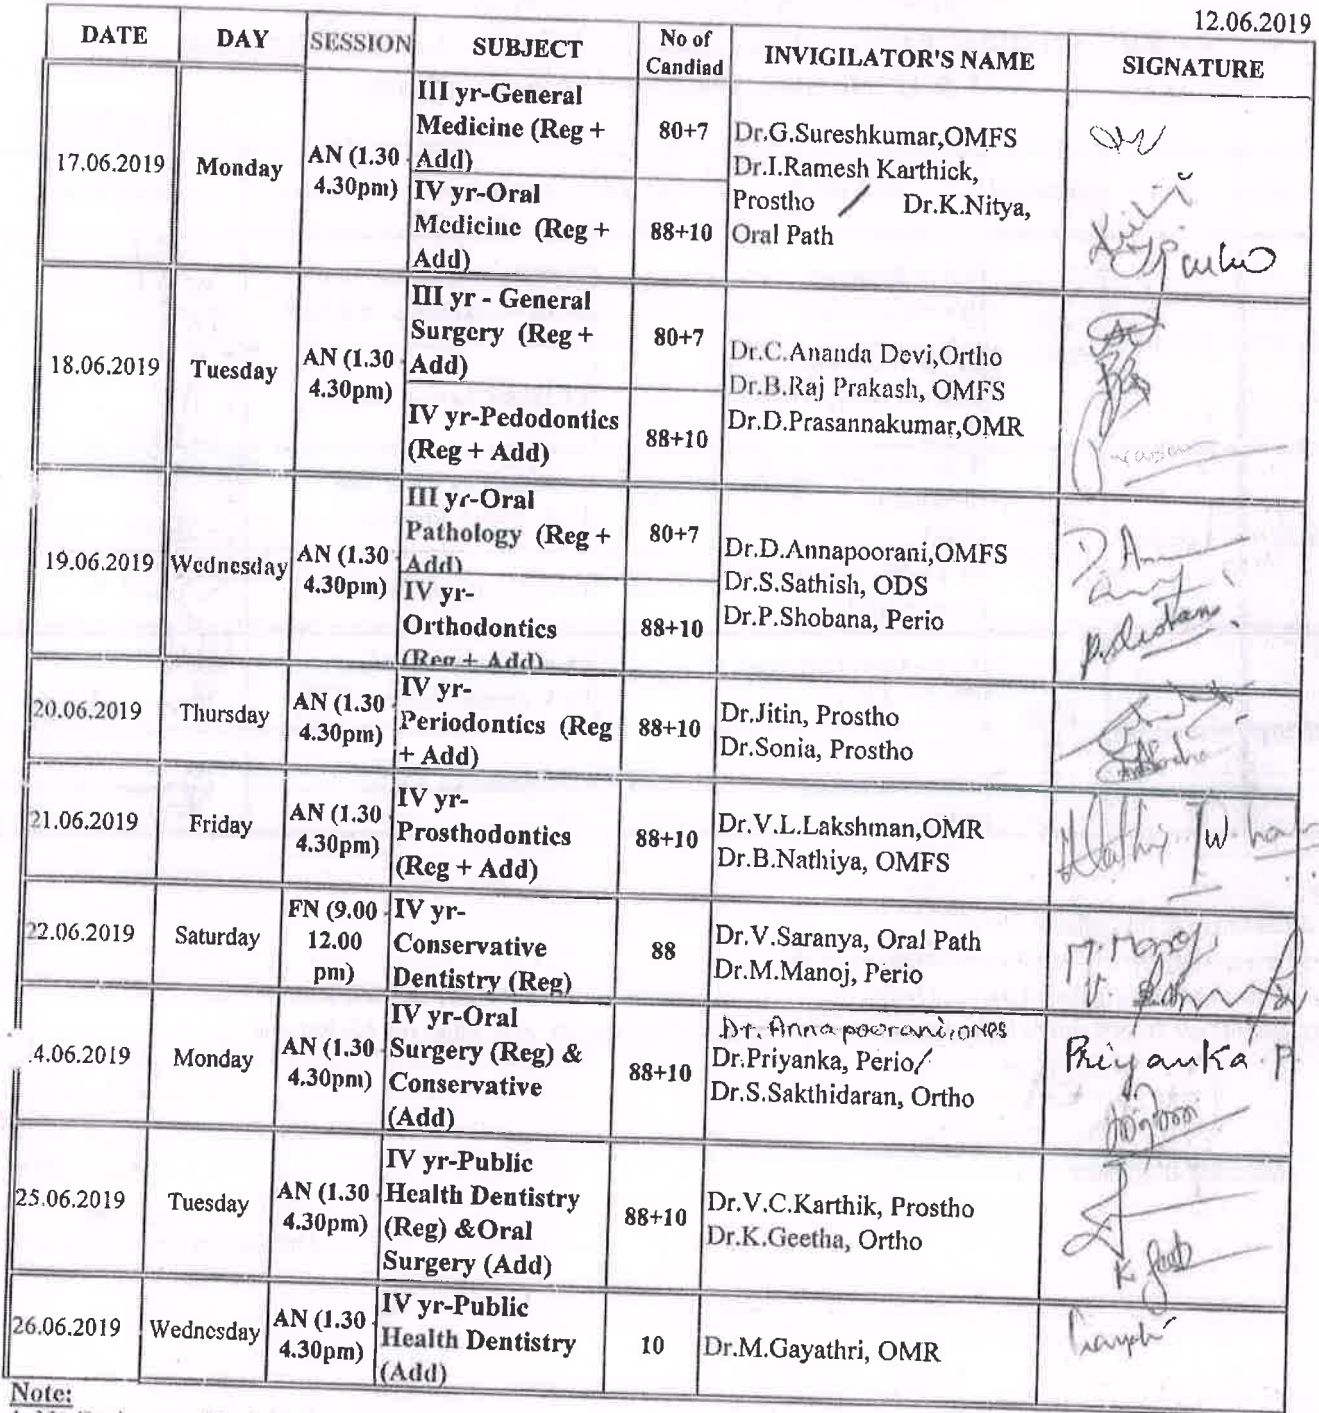 12.06.2019
DATE DAY SESSION SUBJECT No of Candiad INVIGILATOR'S NAME SIGNATURE
17.06.2019 Monday AN (1.30 - 4.30pm)
III yr-General
Medicine (Reg +
Add)
80+7
IV yr-Oral
Medicine (Reg +
Add)
88+10
Dr.G.Sureshkumar,OMFS
Dr.I.Ramesh Karthick,
Prostho / Dr.K.Nitya,
Oral Path
18.06.2019 Tuesday AN (1.30 - 4.30pm)
III yr - General
Surgery (Reg +
Add)
80+7
IV yr-Pedodontics
(Reg + Add)
88+10
Dr.C.Ananda Devi,Ortho
Dr.B.Raj Prakash, OMFS
Dr.D.Prasannakumar,OMR
19.06.2019 Wednesday AN (1.30 - 4.30pm)
III yr-Oral
Pathology (Reg +
Add)
80+7
IV yr-
Orthodontics
(Reg + Add)
88+10
Dr.D.Annapoorani,OMFS
Dr.S.Sathish, ODS
Dr.P.Shobana, Perio
20.06.2019 Thursday AN (1.30 - 4.30pm)
IV yr-
Periodontics (Reg
+ Add)
88+10
Dr.Jitin, Prostho
Dr.Sonia, Prostho
21.06.2019 Friday AN (1.30 - 4.30pm)
IV yr-
Prosthodontics
(Reg + Add)
88+10
Dr.V.L.Lakshman,OMR
Dr.B.Nathiya, OMFS
22.06.2019 Saturday FN (9.00 - 12.00 pm)
IV yr-
Conservative
Dentistry (Reg)
88
Dr.V.Saranya, Oral Path
Dr.M.Manoj, Perio
M.Manoj
4.06.2019 Monday AN (1.30 - 4.30pm)
IV yr-Oral
Surgery (Reg) &
Conservative
(Add)
88+10
Dr. Annapoorani, OMFS
Dr.Priyanka, Perio/
Dr.S.Sakthidaran, Ortho
Priyanka.P
25.06.2019 Tuesday AN (1.30 - 4.30pm)
IV yr-Public
Health Dentistry
(Reg) &Oral
Surgery (Add)
88+10
Dr.V.C.Karthik, Prostho
Dr.K.Geetha, Ortho
26.06.2019 Wednesday AN (1.30 - 4.30pm)
IV yr-Public
Health Dentistry
(Add)
10
Dr.M.Gayathri, OMR
Note: